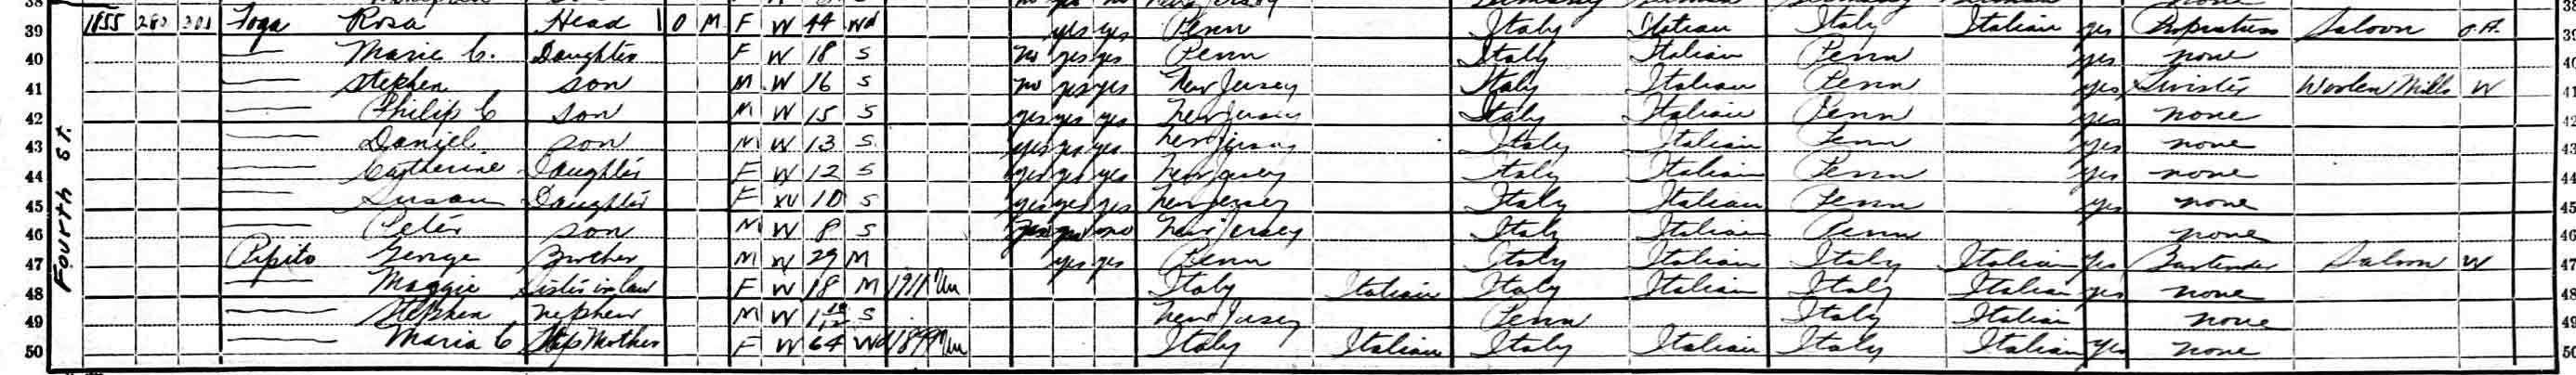 38 none 38
Fourth St.
39 1855 280 301 Foga Rosa Head 1 O M F W 44 Wd yes yes Penn Italy Italian Italy Italian yes Proprietress Saloon O.A. 39
40 — Marie C. Daughter F W 18 S no yes yes Penn Italy Italian Penn yes none 40
41 — Stephen son M W 16 S no yes yes New Jersey Italy Italian Penn yes Twister Woolen Mills W 41
42 — Philip C son M W 15 S yes yes yes New Jersey Italy Italian Penn yes none 42
43 — Daniel son M W 13 S yes yes yes New Jersey Italy Italian Penn yes none 43
44 — Catherine Daughter F W 12 S yes yes yes New Jersey Italy Italian Penn yes none 44
45 — Susan Daughter F W 10 S yes yes yes New Jersey Italy Italian Penn yes none 45
46 — Peter son M W 8 S no New Jersey Italy Italian Penn none 46
47 Pepito George Brother M W 29 M yes yes Penn Italy Italian Italy Italian yes Bartender Saloon W 47
48 — Maggie Sister in law F W 18 M 1911 Un Italy Italian Italy Italian Italy Italian yes none 48
49 — Stephen nephew M W 1 10/12 S New Jersey Penn Italy Italian none 49
50 — Maria C Step Mother F W 64 Wd Un Italy Italian Italy Italian Italy Italian yes none 50